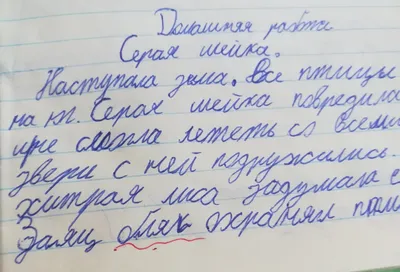 Домашняя работа
Серая шейка.
Наступала зима. Все птицы
на юг. Серая шейка повредила
и не смогла лететь со всеми
звери с ней подружились.
хитрая лиса задумала с
Заяц беляк охранял